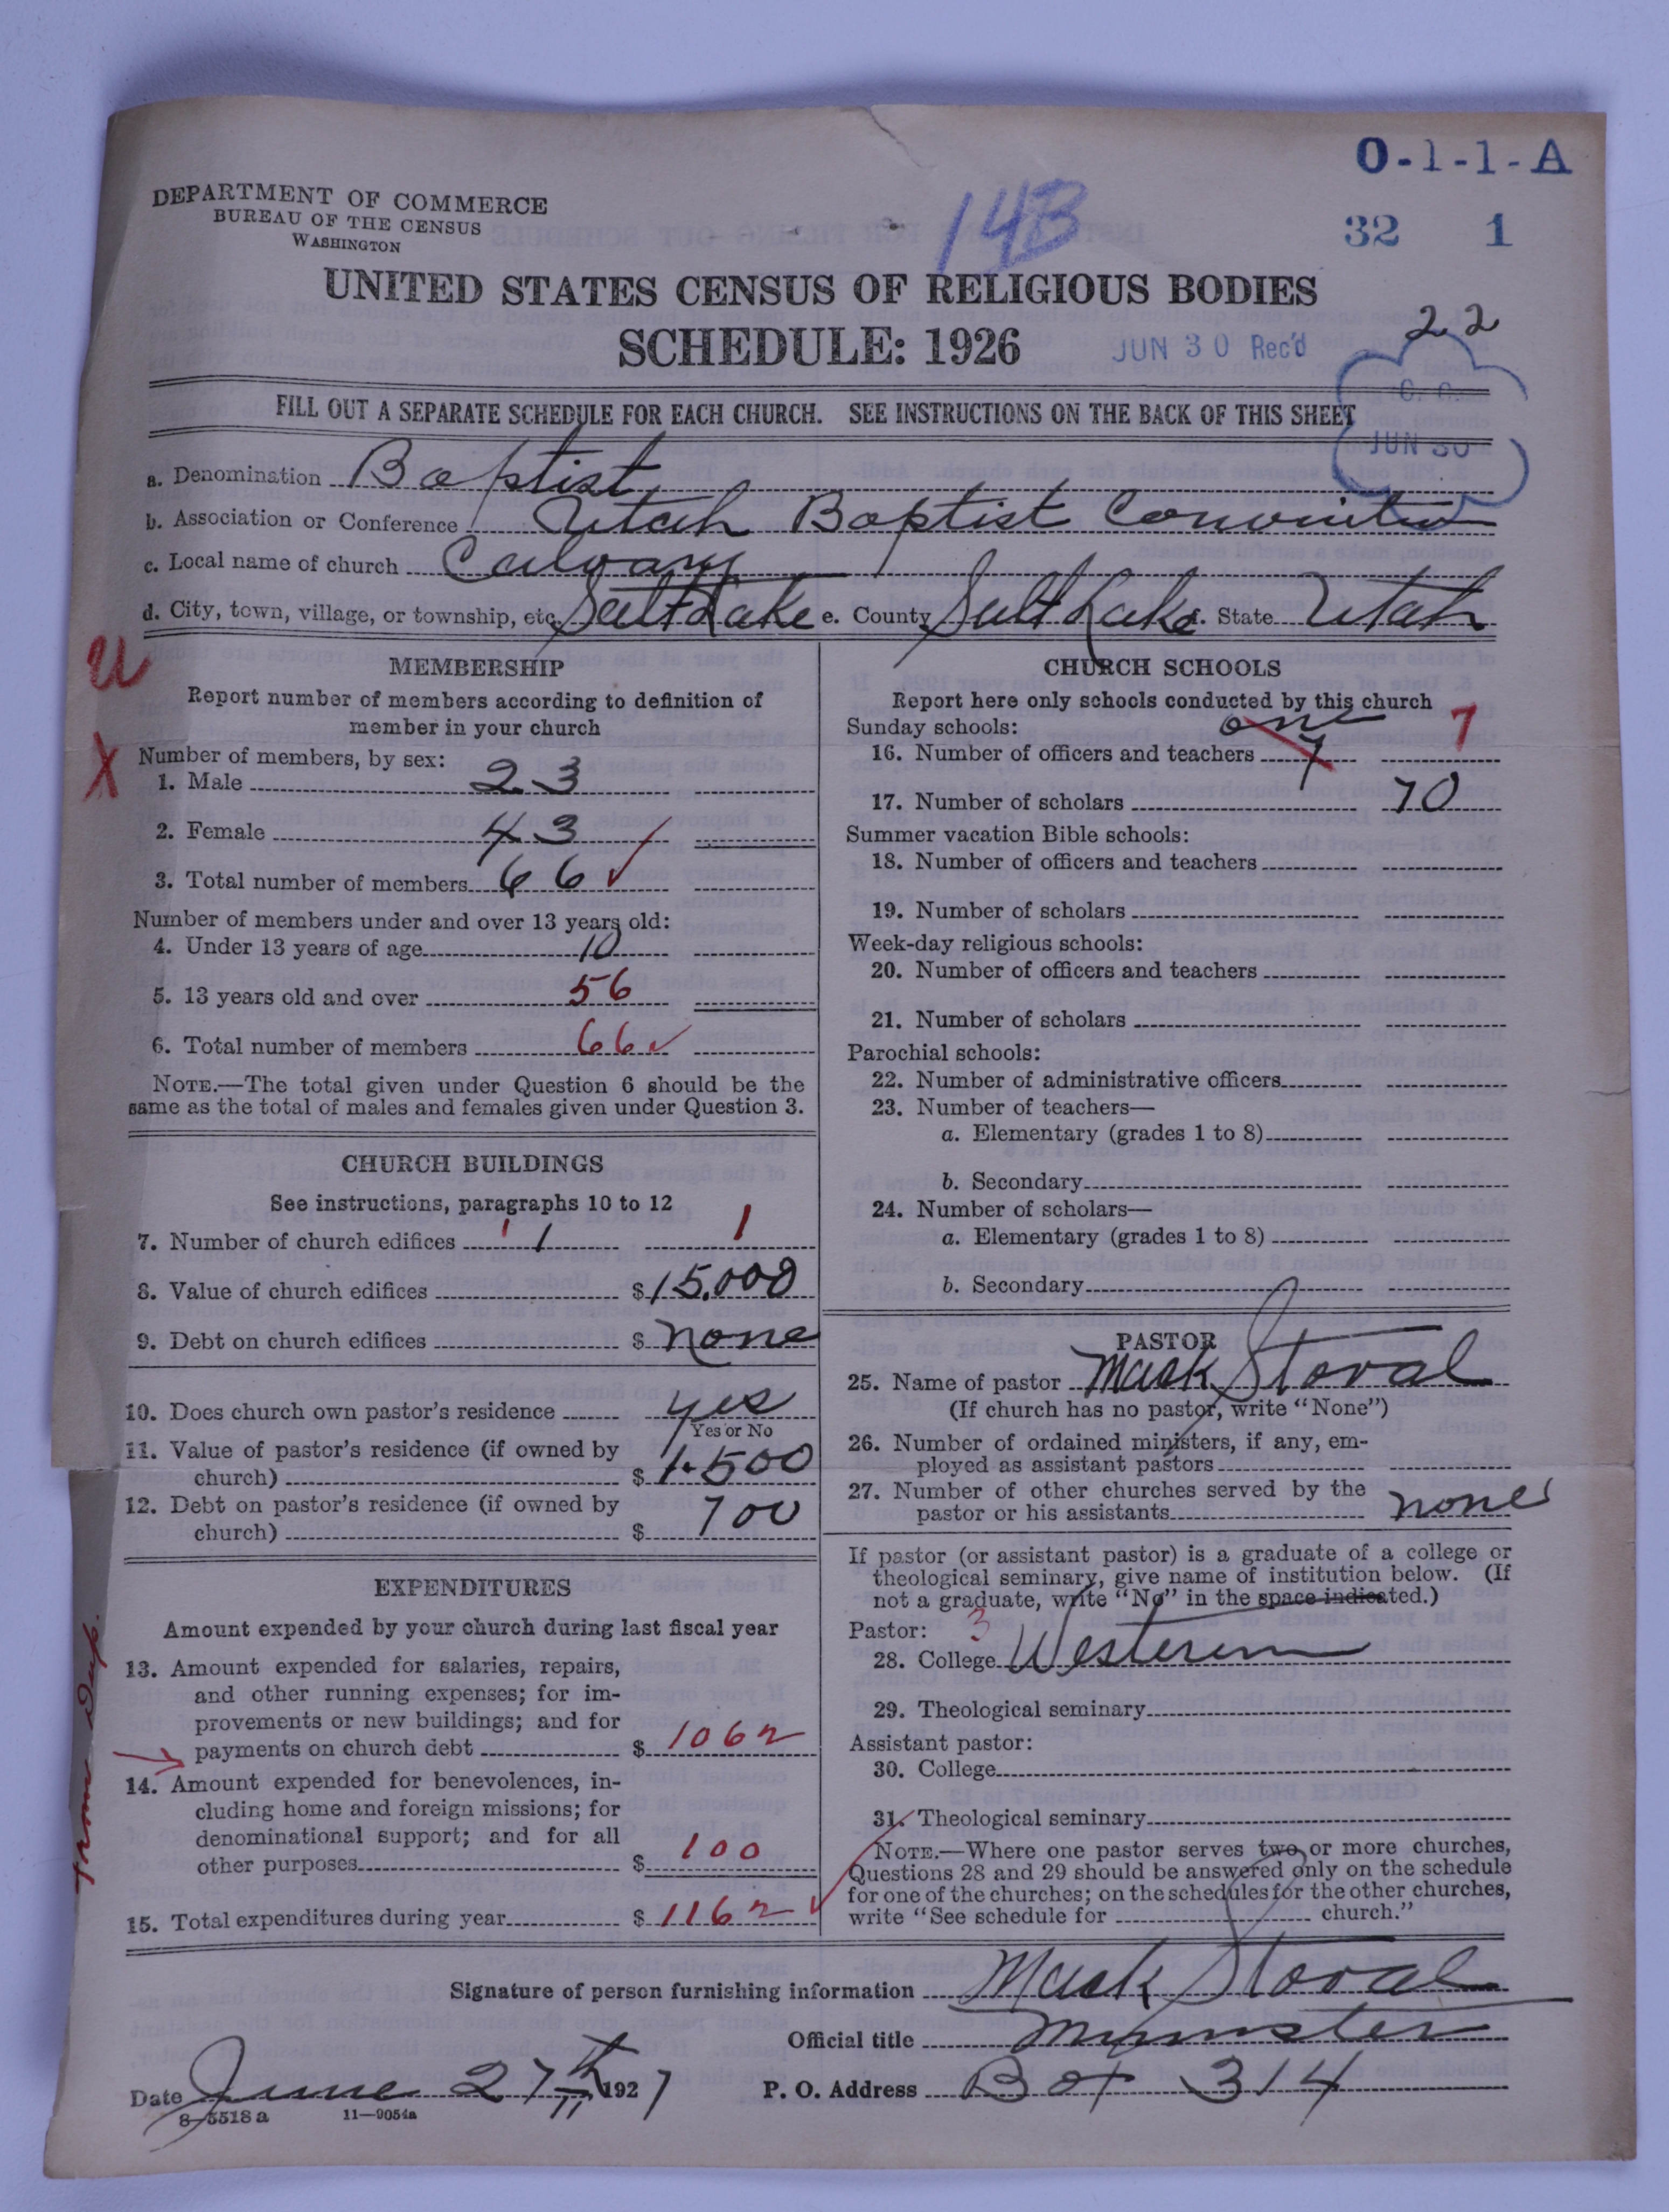 O-1-1-A
DEPARTMENT OF COMMERCE
BUREAU OF THE CENSUS
WASHINGTON
14B
32 1
UNITED STATES CENSUS OF RELIGIOUS BODIES
SCHEDULE: 1926
JUN 30 Rec'd
22
C. C.
JUN 30
FILL OUT A SEPARATE SCHEDULE FOR EACH CHURCH. SEE INSTRUCTIONS ON THE BACK OF THIS SHEET
a. Denomination Baptist
b. Association or Conference Utah Baptist Convintion
c. Local name of church Calvary
d. City, town, village, or township, etc. Salt Lake e. County Salt Lake f. State Utah
U
X
MEMBERSHIP
Report number of members according to definition of
member in your church
Number of members, by sex:
1. Male 23
2. Female 43
3. Total number of members 66
Number of members under and over 13 years old:
4. Under 13 years of age 10
5. 13 years old and over 56
6. Total number of members 66
NOTE.—The total given under Question 6 should be the
same as the total of males and females given under Question 3.
CHURCH BUILDINGS
See instructions, paragraphs 10 to 12
7. Number of church edifices 1 1 1
8. Value of church edifices $15,000
9. Debt on church edifices $ none
10. Does church own pastor's residence yes
Yes or No
11. Value of pastor's residence (if owned by
church) $ 1500
12. Debt on pastor's residence (if owned by
church) $ 700
EXPENDITURES
Amount expended by your church during last fiscal year
13. Amount expended for salaries, repairs,
and other running expenses; for im-
provements or new buildings; and for
payments on church debt $ 1062
14. Amount expended for benevolences, in-
cluding home and foreign missions; for
denominational support; and for all
other purposes $ 100
15. Total expenditures during year $ 1162
from
CHURCH SCHOOLS
Report here only schools conducted by this church
Sunday schools: one
16. Number of officers and teachers 7 7
17. Number of scholars 70
Summer vacation Bible schools:
18. Number of officers and teachers
19. Number of scholars
Week-day religious schools:
20. Number of officers and teachers
21. Number of scholars
Parochial schools:
22. Number of administrative officers
23. Number of teachers—
a. Elementary (grades 1 to 8)
b. Secondary
24. Number of scholars—
a. Elementary (grades 1 to 8)
b. Secondary
PASTOR
25. Name of pastor Mack Stoval
(If church has no pastor, write "None")
26. Number of ordained ministers, if any, em-
ployed as assistant pastors
27. Number of other churches served by the
pastor or his assistants none
If pastor (or assistant pastor) is a graduate of a college or
theological seminary, give name of institution below. (If
not a graduate, write "No" in the space indicated.)
Pastor: 3
28. College Westerin
29. Theological seminary
Assistant pastor:
30. College
31. Theological seminary
NOTE.—Where one pastor serves two or more churches,
Questions 28 and 29 should be answered only on the schedule
for one of the churches; on the schedules for the other churches,
write "See schedule for church."
Signature of person furnishing information Mack Stoval
Official title Minister
Date June 27th 1927 P. O. Address Box 314
8—5518 a 11—9054a